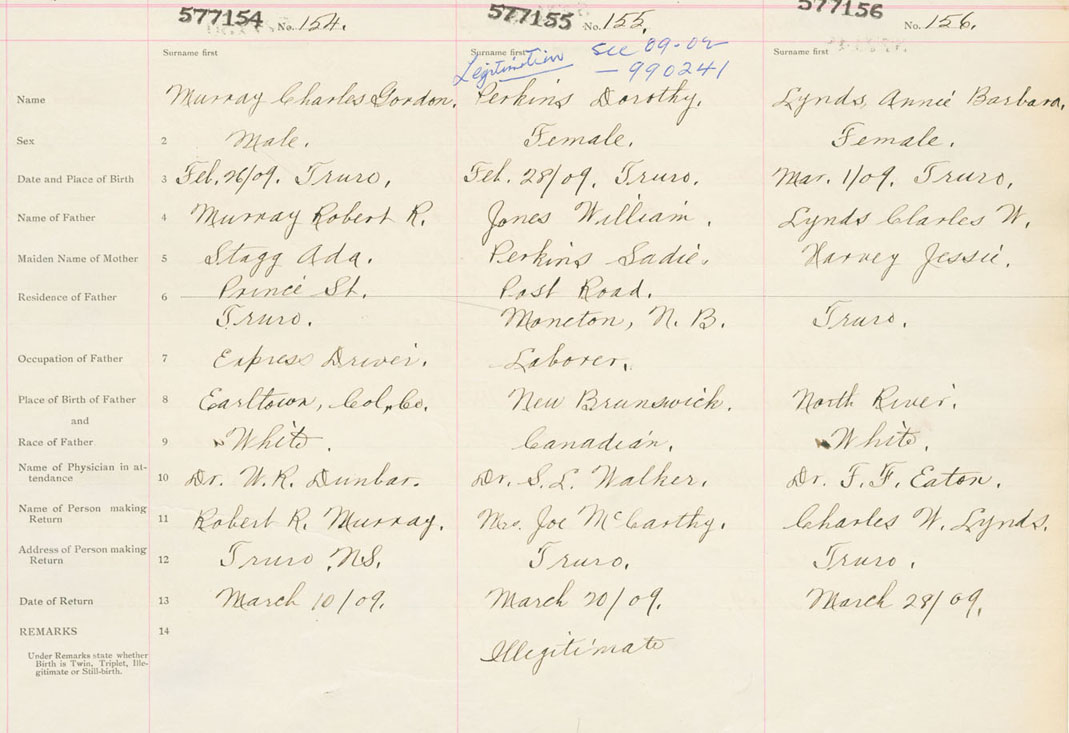 577154 No. 154. 577155 No. 155. 577156 No. 156.
Surname first Surname first Surname first
Legitimation see 09-02
- 990241
Name Murray Charles Gordon. Perkins Dorothy. Lynds, Annie Barbara.
Sex 2 Male. Female. Female.
Date and Place of Birth 3 Feb. 26/09. Truro. Feb. 28/09. Truro. Mar. 1/09. Truro.
Name of Father 4 Murray Robert R. Jones William. Lynds Charles W.
Maiden Name of Mother 5 Stagg Ada. Perkins Sadie. Harvey Jessie.
Residence of Father 6 Prince St. Post Road.
Truro. Moncton, N. B. Truro.
Occupation of Father 7 Express Driver. Laborer.
Place of Birth of Father 8 Earltown, Col. Co. New Brunswick. North River.
and
Race of Father 9 White. Canadian. White.
Name of Physician in at-
tendance 10 Dr. W. R. Dunbar. Dr. S. L. Walker. Dr. F. F. Eaton.
Name of Person making
Return 11 Robert R. Murray. Mrs. Joe McCarthy. Charles W. Lynds.
Address of Person making
Return 12 Truro, N.S. Truro. Truro.
Date of Return 13 March 10/09. March 20/09. March 28/09.
REMARKS 14
Illegitimate
Under Remarks state whether
Birth is Twin, Triplet, Ille-
gitimate or Still-birth.